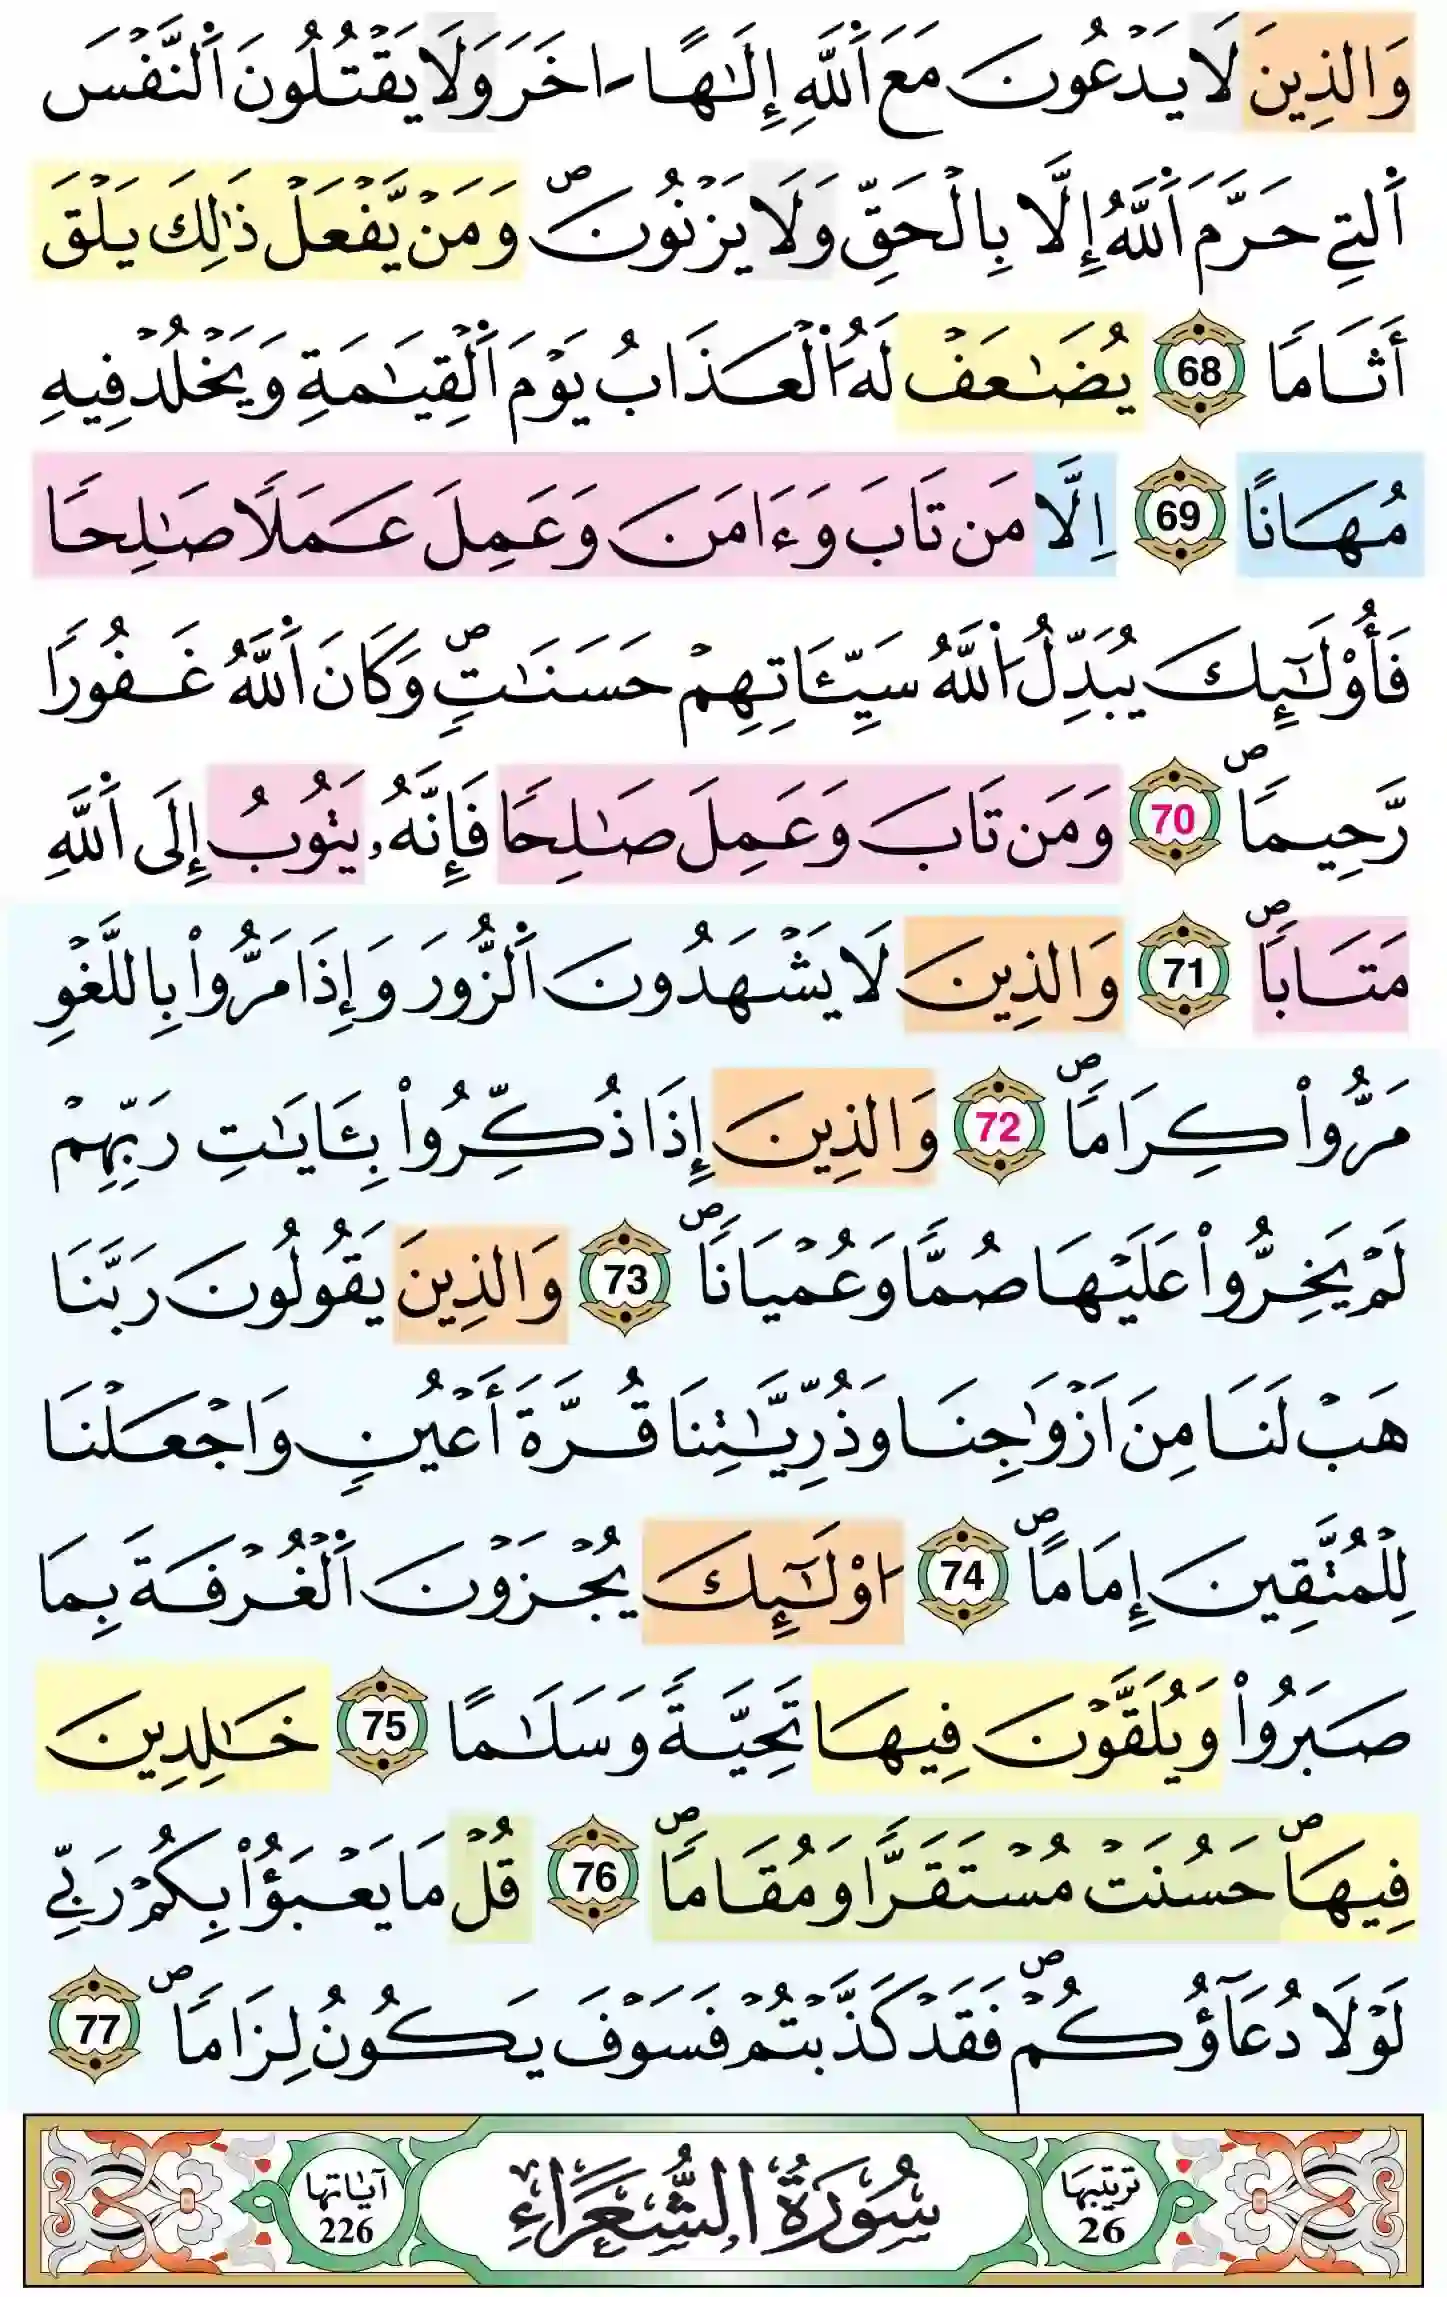 وَالذِينَ لَا يَدْعُونَ مَعَ اَ۬للَّهِ إِلَٰهاً ـ اخَرَ وَلَا يَقْتُلُونَ اَ۬لنَّفْسَ
اَ۬لتِے حَرَّمَ اَ۬للَّهُ إِلَّا بِالْحَقِّ وَلَا يَزْنُونَۖ وَمَنْ يَّفْعَلْ ذَٰلِكَ يَلْقَ
أَثَاماً 68 يُضَٰعَفْ لَهُ اُ۬لْعَذَابُ يَوْمَ اَ۬لْقِيَٰمَةِ وَيَخْلُدْ فِيهِ
مُهَاناً 69 اِلَّا مَن تَابَ وَءَامَنَ وَعَمِلَ عَمَلًا صَٰلِحاً
فَأُوْلَٰٓئِكَ يُبَدِّلُ اُ۬للَّهُ سَيِّـَٔاتِهِمْ حَسَنَٰتٍۖ وَكَانَ اَ۬للَّهُ غَفُوراً
رَّحِيماًۖ 70 وَمَن تَابَ وَعَمِلَ صَٰلِحاً فَإِنَّهُۥ يَتُوبُ إِلَى اَ۬للَّهِ
مَتَاباًۖ 71 وَالذِينَ لَا يَشْهَدُونَ اَ۬لزُّورَ وَإِذَا مَرُّواْ بِاللَّغْوِ
مَرُّواْ كِرَاماًۖ 72 وَالذِينَ إِذَا ذُكِّرُواْ بِـَٔايَٰتِ رَبِّهِمْ
لَمْ يَخِرُّواْ عَلَيْهَا صُمّاً وَعُمْيَاناًۖ 73 وَالذِينَ يَقُولُونَ رَبَّنَا
هَبْ لَنَا مِنَ اَزْوَٰجِنَا وَذُرِّيَّٰتِنَا قُرَّةَ أَعْيُنٍ وَاجْعَلْنَا
لِلْمُتَّقِينَ إِمَاماًۖ 74 اُوْلَٰٓئِكَ يُجْزَوْنَ اَ۬لْغُرْفَةَ بِمَا
صَبَرُواْ وَيُلَقَّوْنَ فِيهَا تَحِيَّةً وَسَلَٰماً 75 خَٰلِدِينَ
فِيهَاۖ حَسُنَتْ مُسْتَقَرّاً وَمُقَاماًۖ 76 قُلْ مَا يَعْبَؤُاْ بِكُمْ رَبِّے
لَوْلَا دُعَآؤُكُمْۖ فَقَدْ كَذَّبْتُمْ فَسَوْفَ يَكُونُ لِزَاماًۖ 77
ترتيبها 26 سُورَةُ الشُّعَرَاءِ آياتها 226